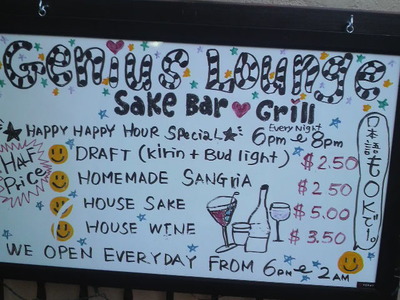 Genius Lounge
Sake Bar Grill
HAPPY HAPPY HOUR Special
Every Night
6pm ~ 8pm
HALF Price
DRAFT (Kirin + Bud light) $2.50
HOMEMADE SANGRIA $2.50
HOUSE SAKE $5.00
HOUSE WINE $3.50
WE OPEN EVERYDAY FROM 6pm ~ 2AM
日本語もOKデース。